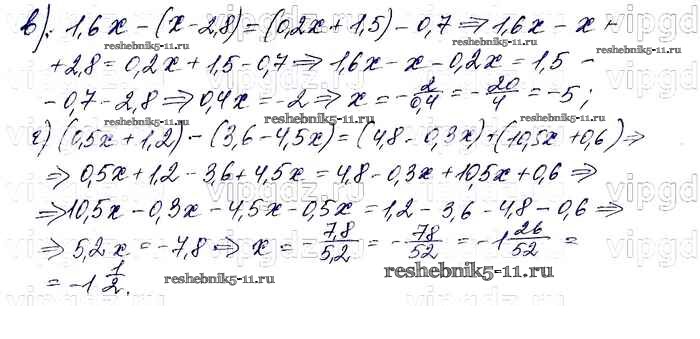 в). 1,6x - (x - 2,8) = (0,2x + 1,5) - 0,7 ⇒ 1,6x - x +
reshebnik5-11.ru
reshebnik5-11.ru
+ 2,8 = 0,2x + 1,5 - 0,7 ⇒ 1,6x - x - 0,2x = 1,5 -
- 0,7 - 2,8 ⇒ 0,4x = -2 ⇒ x = -2/0,4 = -20/4 = -5;
reshebnik5-11.ru
г) (0,5x + 1,2) - (3,6 - 4,5x) = (4,8 - 0,3x) + (10,5x + 0,6) ⇒
⇒ 0,5x + 1,2 - 3,6 + 4,5x = 4,8 - 0,3x + 10,5x + 0,6 ⇒
⇒ 10,5x - 0,3x - 4,5x - 0,5x = 1,2 - 3,6 - 4,8 - 0,6 ⇒
⇒ 5,2x = -7,8 ⇒ x = -7,8/5,2 = -78/52 = -1 26/52 =
reshebnik5-11.ru
reshebnik5-11.ru
= -1 1/2.